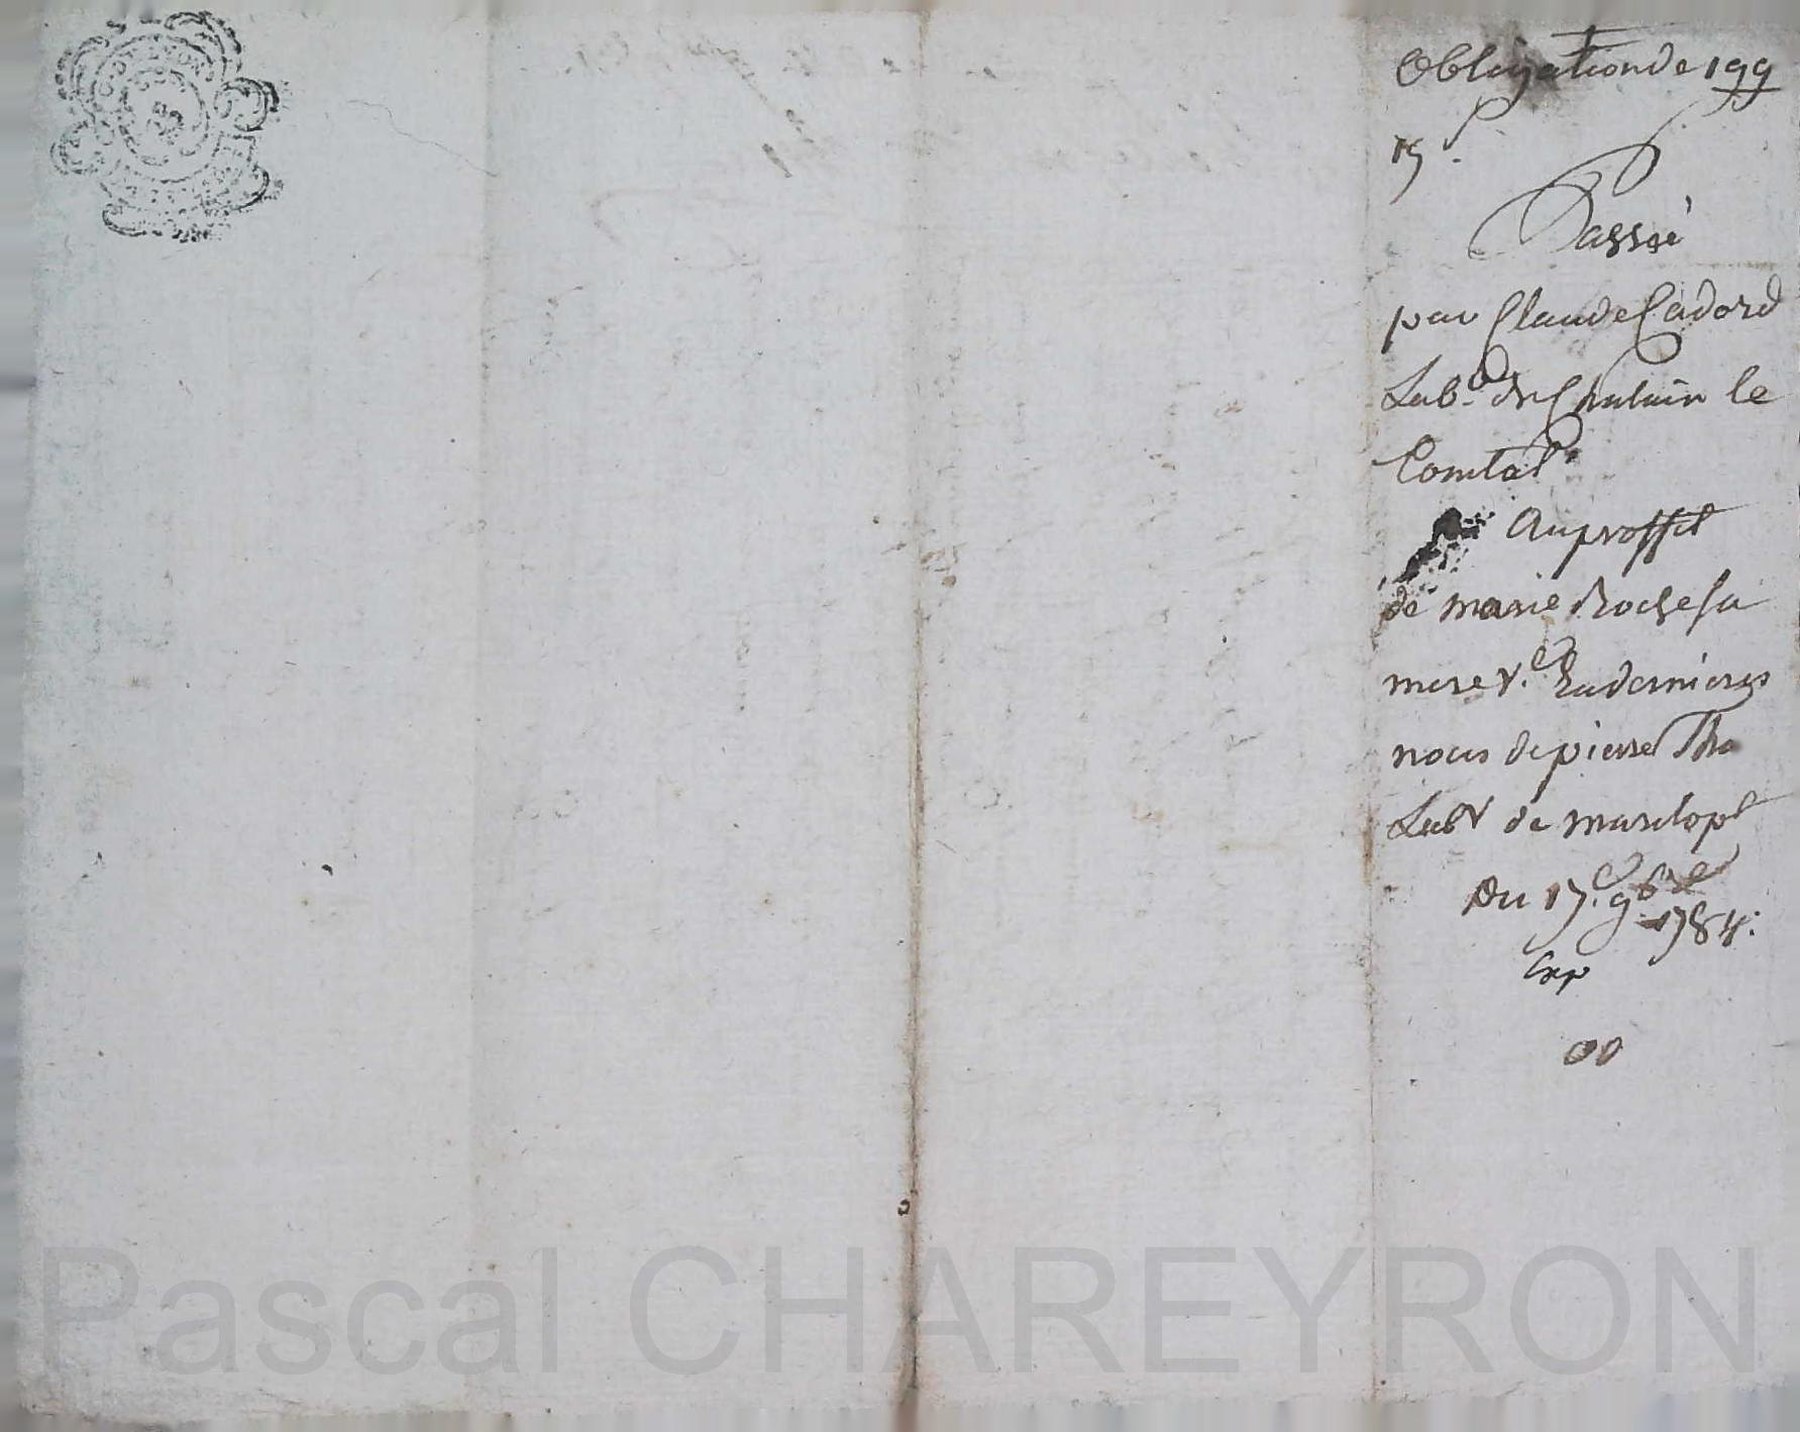 Obligation de 199
15 s.
Passée
par Claude Cadord
Lab.r de Chalain le
Comtal
Au proffit
de marie Roche sa
mere v.e En dernieres
noces de pierre Tho
Labr de Marclopt
Du 17.e 9bre
1784.
Exp
Pascal CHAREYRON